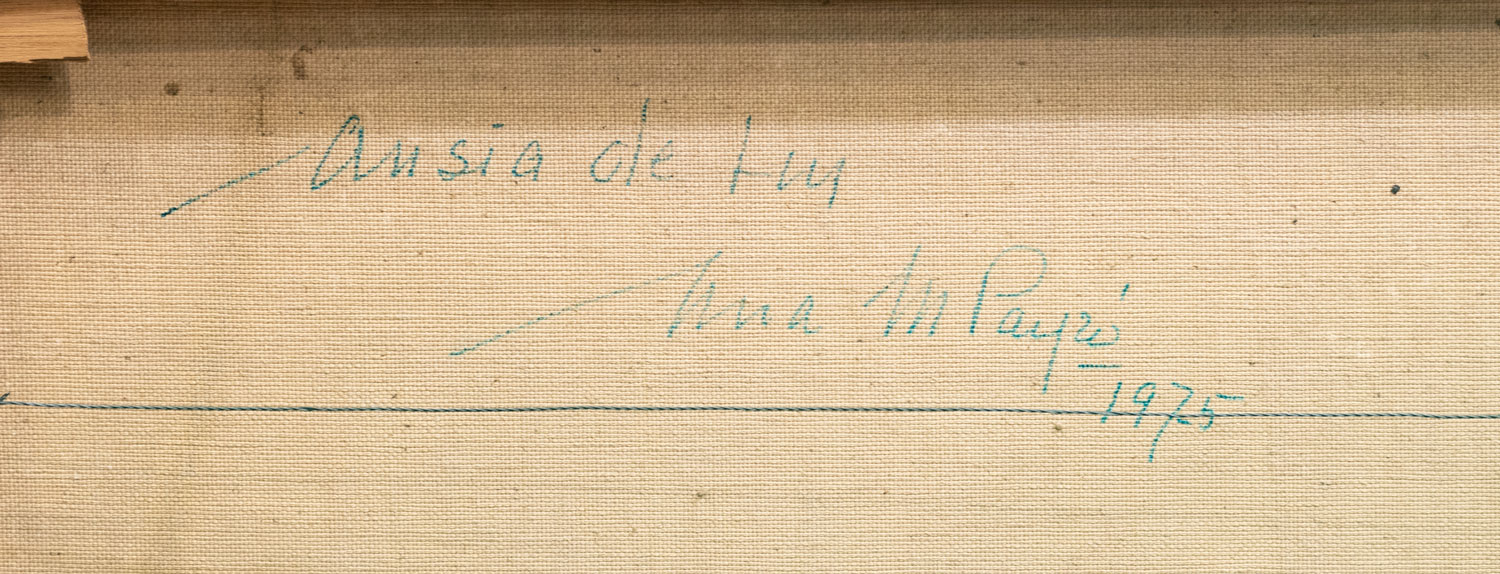 Ansia de Luz
Ana M Payró
1975